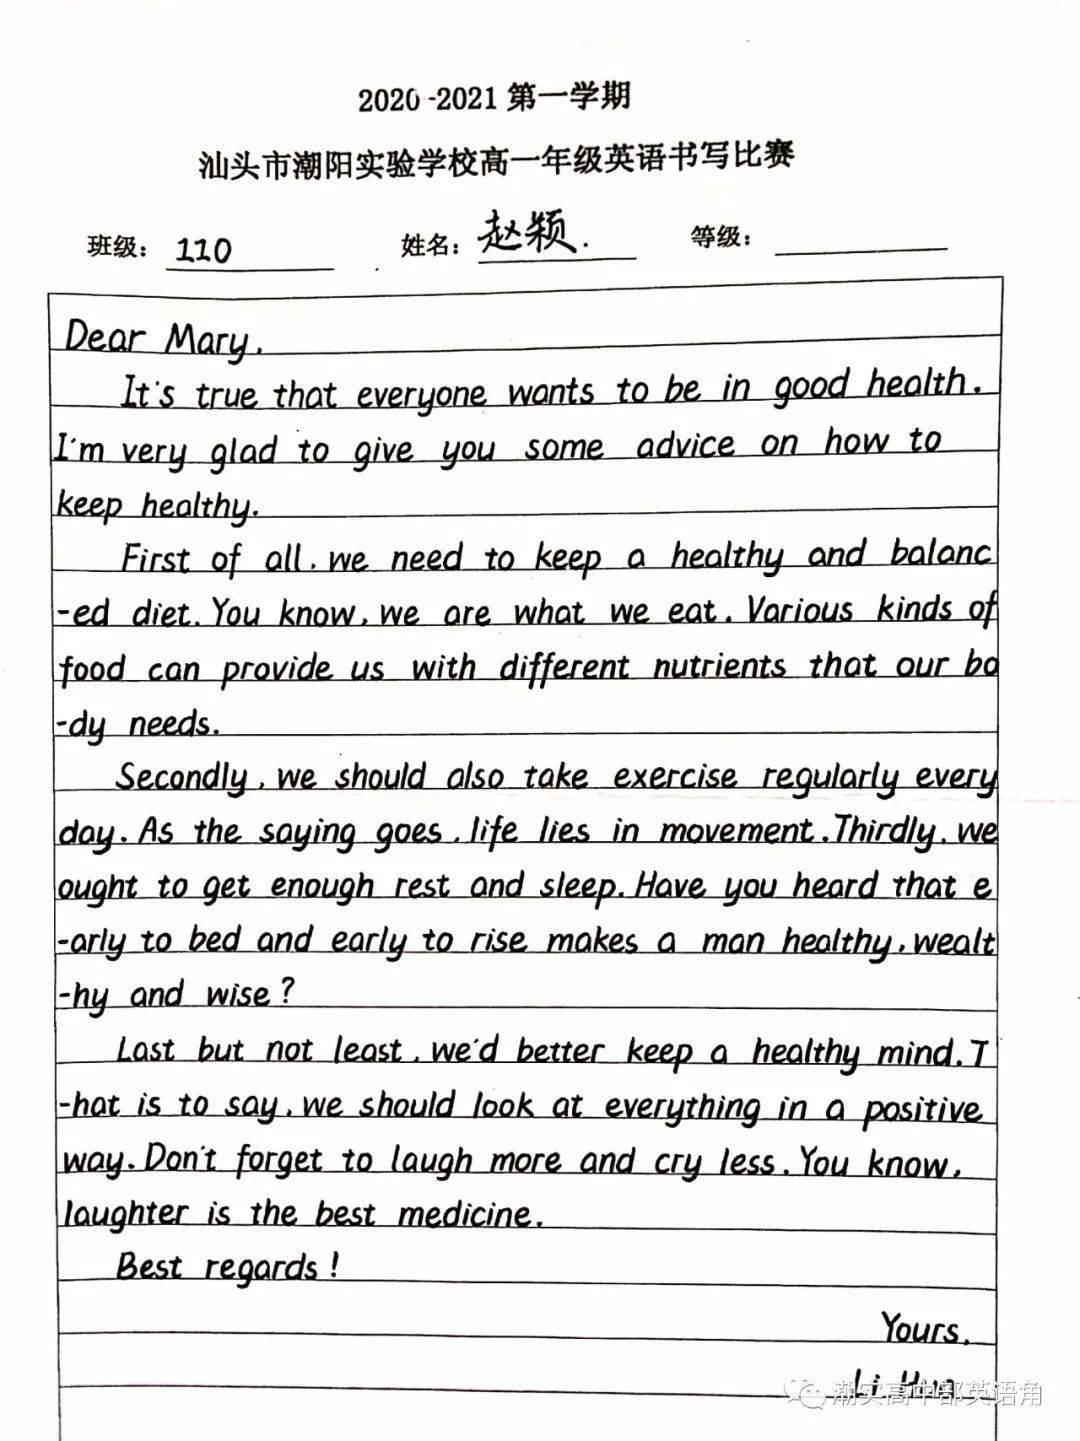 2020-2021第一学期
汕头市潮阳实验学校高一年级英语书写比赛
班级: 110 姓名: 赵颖. 等级:
Dear Mary,
It's true that everyone wants to be in good health.
I'm very glad to give you some advice on how to
keep healthy.
First of all, we need to keep a healthy and balanc
-ed diet. You know, we are what we eat. Various kinds of
food can provide us with different nutrients that our bo
-dy needs.
Secondly, we should also take exercise regularly every
day. As the saying goes, life lies in movement. Thirdly, we
ought to get enough rest and sleep. Have you heard that e
-arly to bed and early to rise makes a man healthy, wealt
-hy and wise?
Last but not least, we'd better keep a healthy mind. T
-hat is to say, we should look at everything in a positive
way. Don't forget to laugh more and cry less. You know,
laughter is the best medicine.
Best regards!
Yours,
Li Hua
潮实高中部英语角